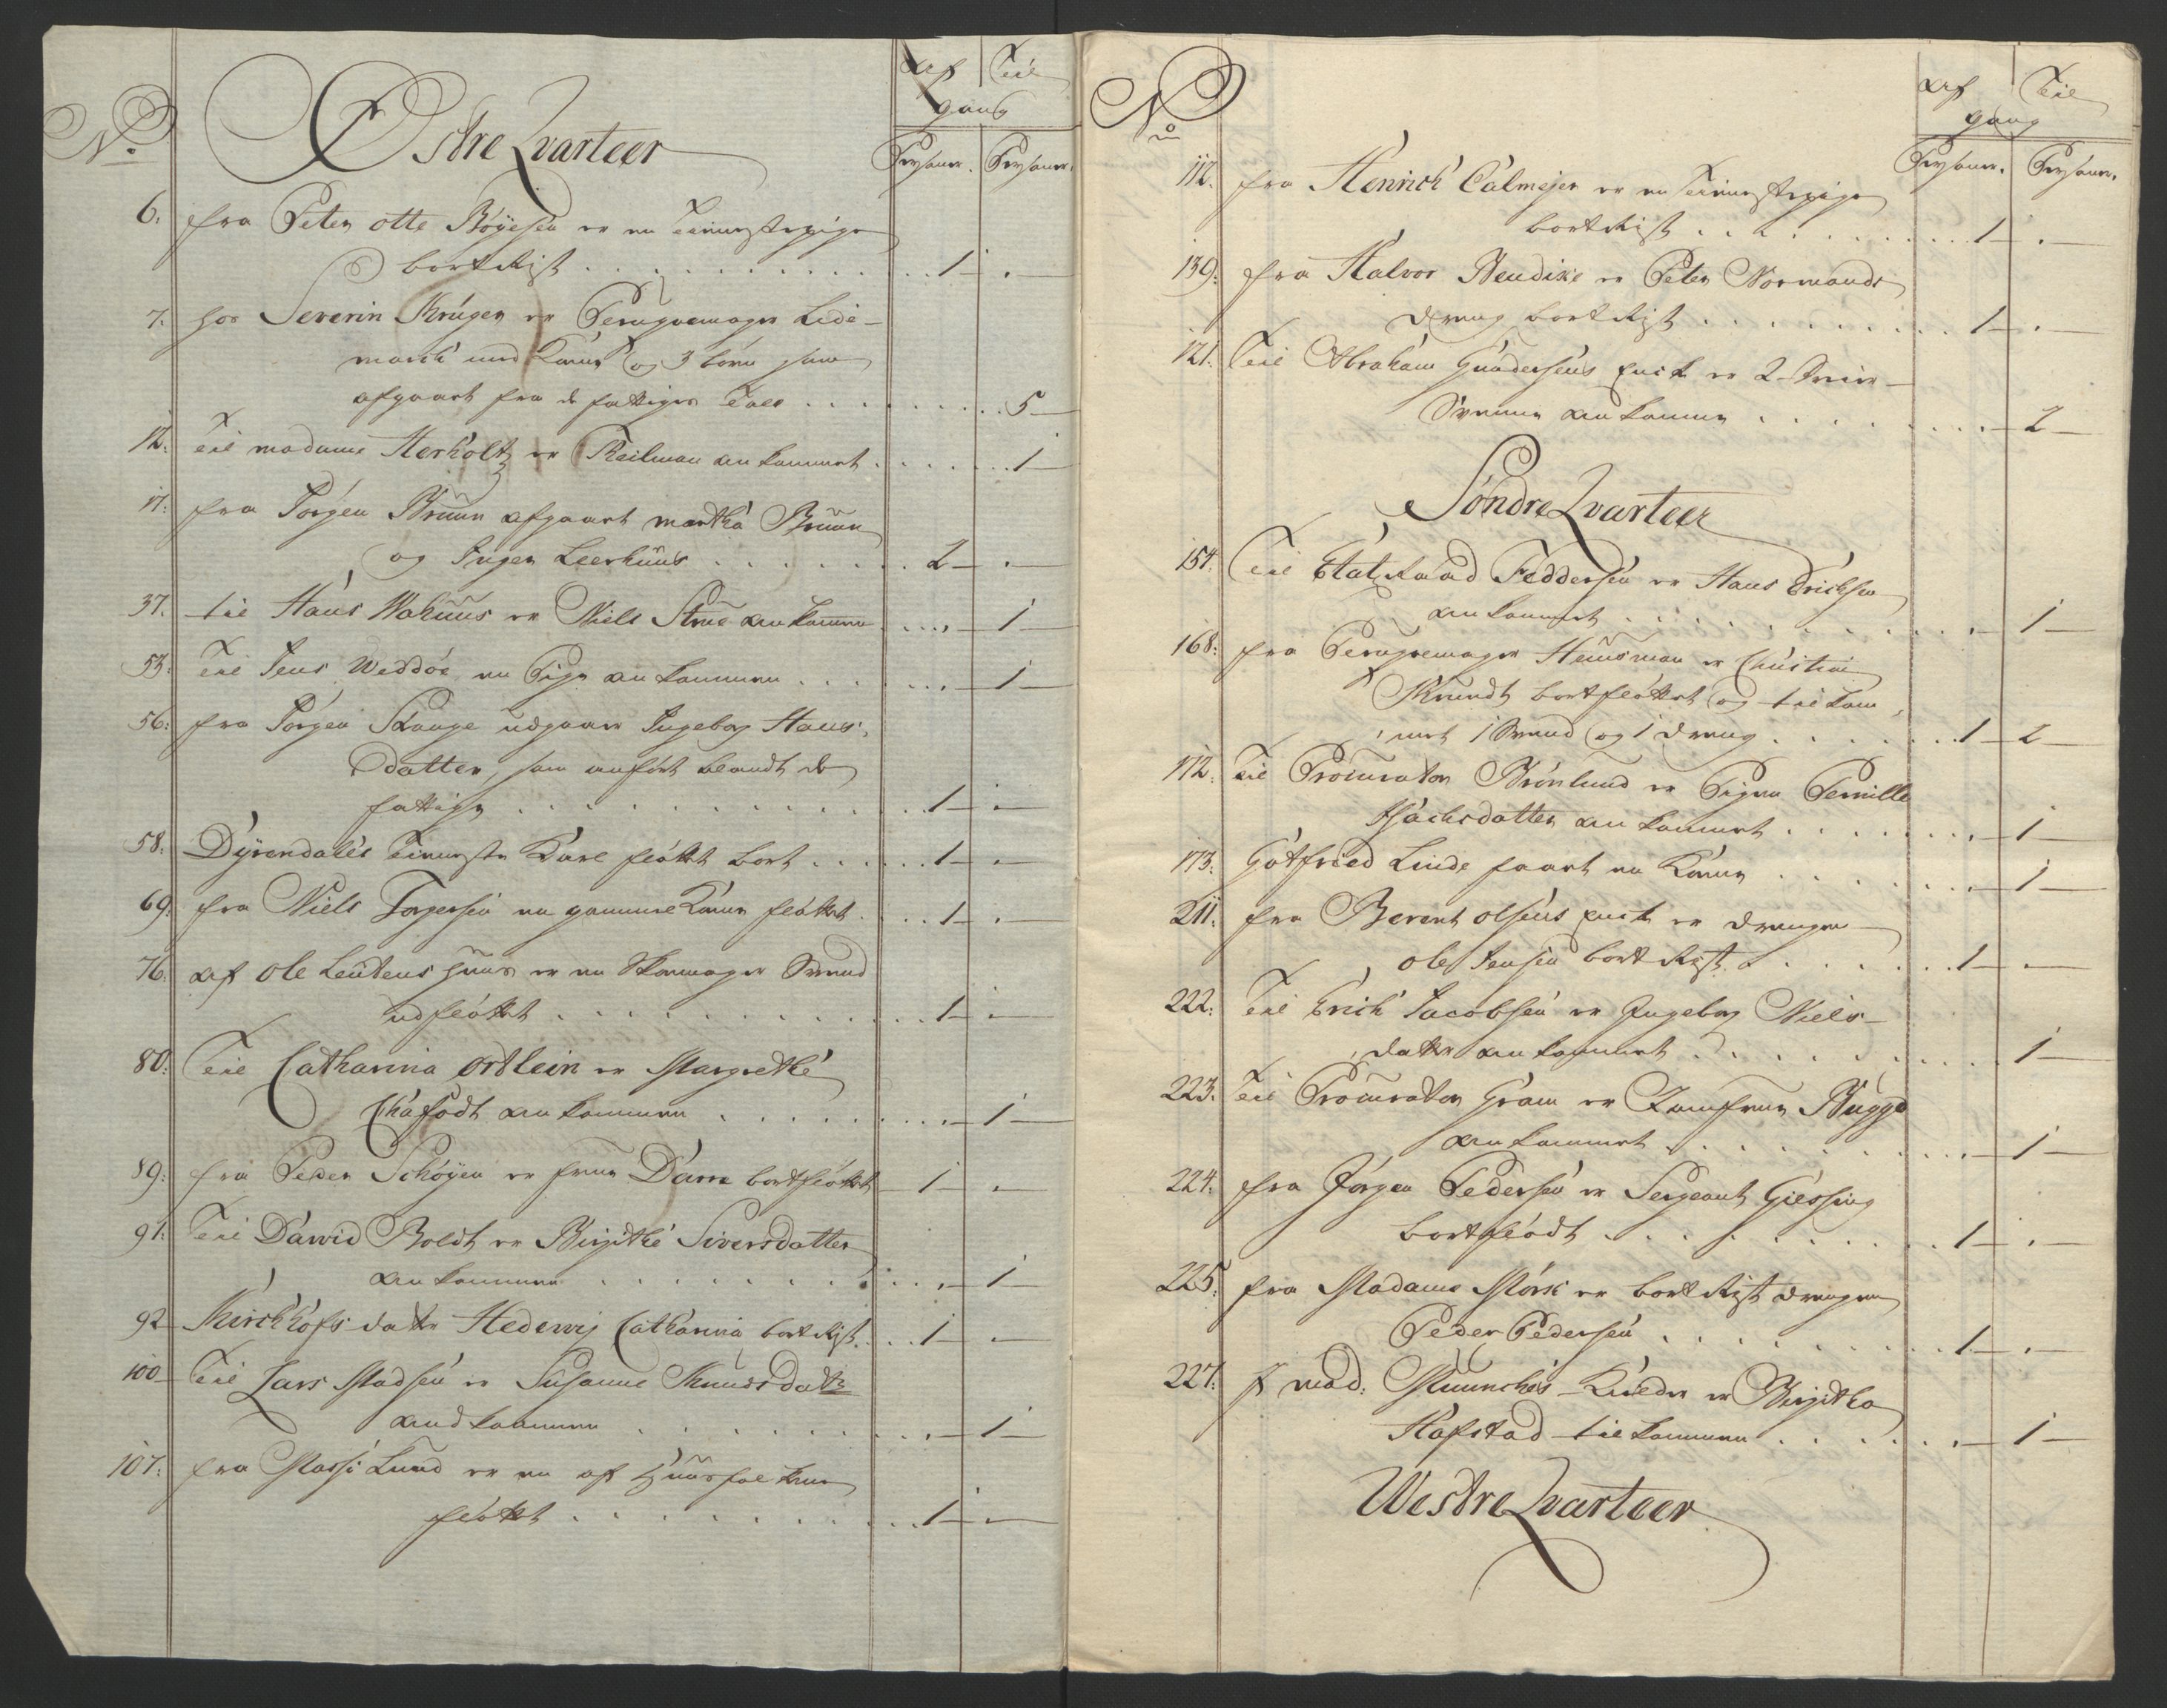 Af Til
gang
No. Østre Qvarteer
Persohner. Persohner.
6. fra Peter Otte Böyesen er en tienneste pige
bortreist . . . 1 — . —
7. hos Severin Krüger er Peruqvemager Lide-
march med Kone og 3 börn som
afgaart fra de fattiges Tall . . . 5 —
12. Til madame Herholtz er Reilman an kommet . . . 1 —
17. fra Jörgen Bruun afgaart martha Bruun
og Inger Leerhuus . . . 2 — . —
37. til Hans Wahuus er Niels Strue an kommen . . . 1 —
53. Til Jens Weddöe en Pige an kommen . . . 1 —
56. fra Jörgen Stange udgaar Ingebor Hans-
datter, som anfört blandt de
fattige . . . 1 — . —
58. Dyrendahls tienneste Karl flöttet bort . . . 1 — . —
69. fra Niels Torgersen en gammel Kone flöttet . . . 1 — . —
76. af Ole Leutens Huus er en Skomager Svend
udflöttet . . . 1 — . —
80. Til Catharina Ortlein er Margrethe
Chafodt an kommen . . . 1 —
89. fra Peder Schöyen er frue Dam bortflöttet — 1 — . —
91. Til David Boldt er Birgithe Siversdatter
an kommen . . . 1 —
92 Kirchhofs datter Hedewig Catharina bortreist . . . 1 — . —
100 Til Lars Madsen er Susanne Knudsdattr
and kommen . . . 1 —
107. fra Massi Lund er en af Huusfolkene
flöttet . . . 1 — . —
No
Af Til
gang
Persohner. Persohner.
112. fra Henrich Calmejer er en tienneste pige
bortreist . . . 1 — . —
139. fra Halvor Bendixe er Peter Normands
dreng bortreist . . . 1 — . —
121. Til Abraham Gundersens Enke er 2
Svenne an kommen . . . 2 —
Söndre Qvarteer
154. Til Etatzraad Feddersen er Hans Erichsen
an kommet . . . 1 —
168. fra Peruqvemager Heusman er Christian
Skrindt bortflöttet og til kom-
met 1 Svend og 1 dreng . . . 1 — 2 —
172. Til Procurator Brönlund er Pigen Pernille
Isachsdatter an kommet . . . 1 —
173. Gotfried Linde faart en Kone . . . 1 —
211. fra Berent Olsens Enke er drengen
Ole Jensen bortreist . . . 1 — . —
222. Til Erich Jacobsen er Ingebor Niels-
datter an kommet . . . 1 —
223. Til Procurator Gram er Jomfrue Bugge
an kommet . . . 1 —
224. fra Jörgen Pedersen er Sergeant Giessing
bortflödt . . . 1 — . —
225. fra Madame Mörk er bortreist drengen
Peder Pedersen . . . 1 — . —
227. f mad: Muunchs Kielder er Birgitha
Hafstad til kommen . . . 1 —
Westre Qvarteer